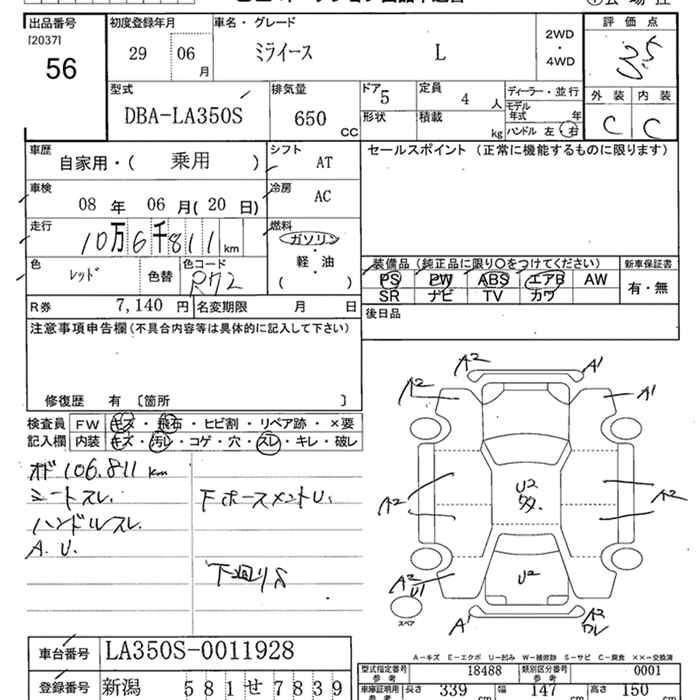 出品番号 初度登録年月 車名・グレード 評価点
[2037]
56
29 06月 ミライース L 2WD・4WD 3.5
型式 排気量 ドア 定員 ディーラー・並行 外装 内装
DBA-LA350S 650 CC 5 4人 モデル年式 年 C C
形状 積載 kg ハンドル 左 右
車歴 シフト セールスポイント（正常に機能するものに限ります）
自家用・( 乗用 ) AT
車検 冷房
08 年 06 月( 20 日) AC
走行 燃料
10万6千811km ガソリン
軽・油
( )
色 色コード 装備品（純正品に限り○をつけてください） 新車保証書
レッド 色替 R72 PS PW ABS エアB AW 有・無
SR ナビ TV カワ
R券 7,140 円 名変期限 月 日 後日品
注意事項申告欄(不具合内容等は具体的に記入して下さい)
修復歴 有 〔箇所 〕
検査員 FW キズ・飛石・ヒビ割・リペア跡・×要
記入欄 内装 キズ・汚レ・コゲ・穴・スレ・キレ・破レ
オド106.811km
シートスレ.
ハンドルスレ. 下ホースメントU.
A.U.
下廻りS
A2 A1
A2 A1
U2
A2 A2
A2 U1 U2
A1 A2
スペア
A-キズ E-エクボ U-凹み W-補修跡 S-サビ C-腐食 ××-交換済
車台番号 LA350S-0011928
型式指定番号 参考 18488 類別区分番号 参考 0001
登録番号 新潟 581せ7839
車庫証明用 参考 長さ 339 cm 幅 147 cm 高さ 150 cm